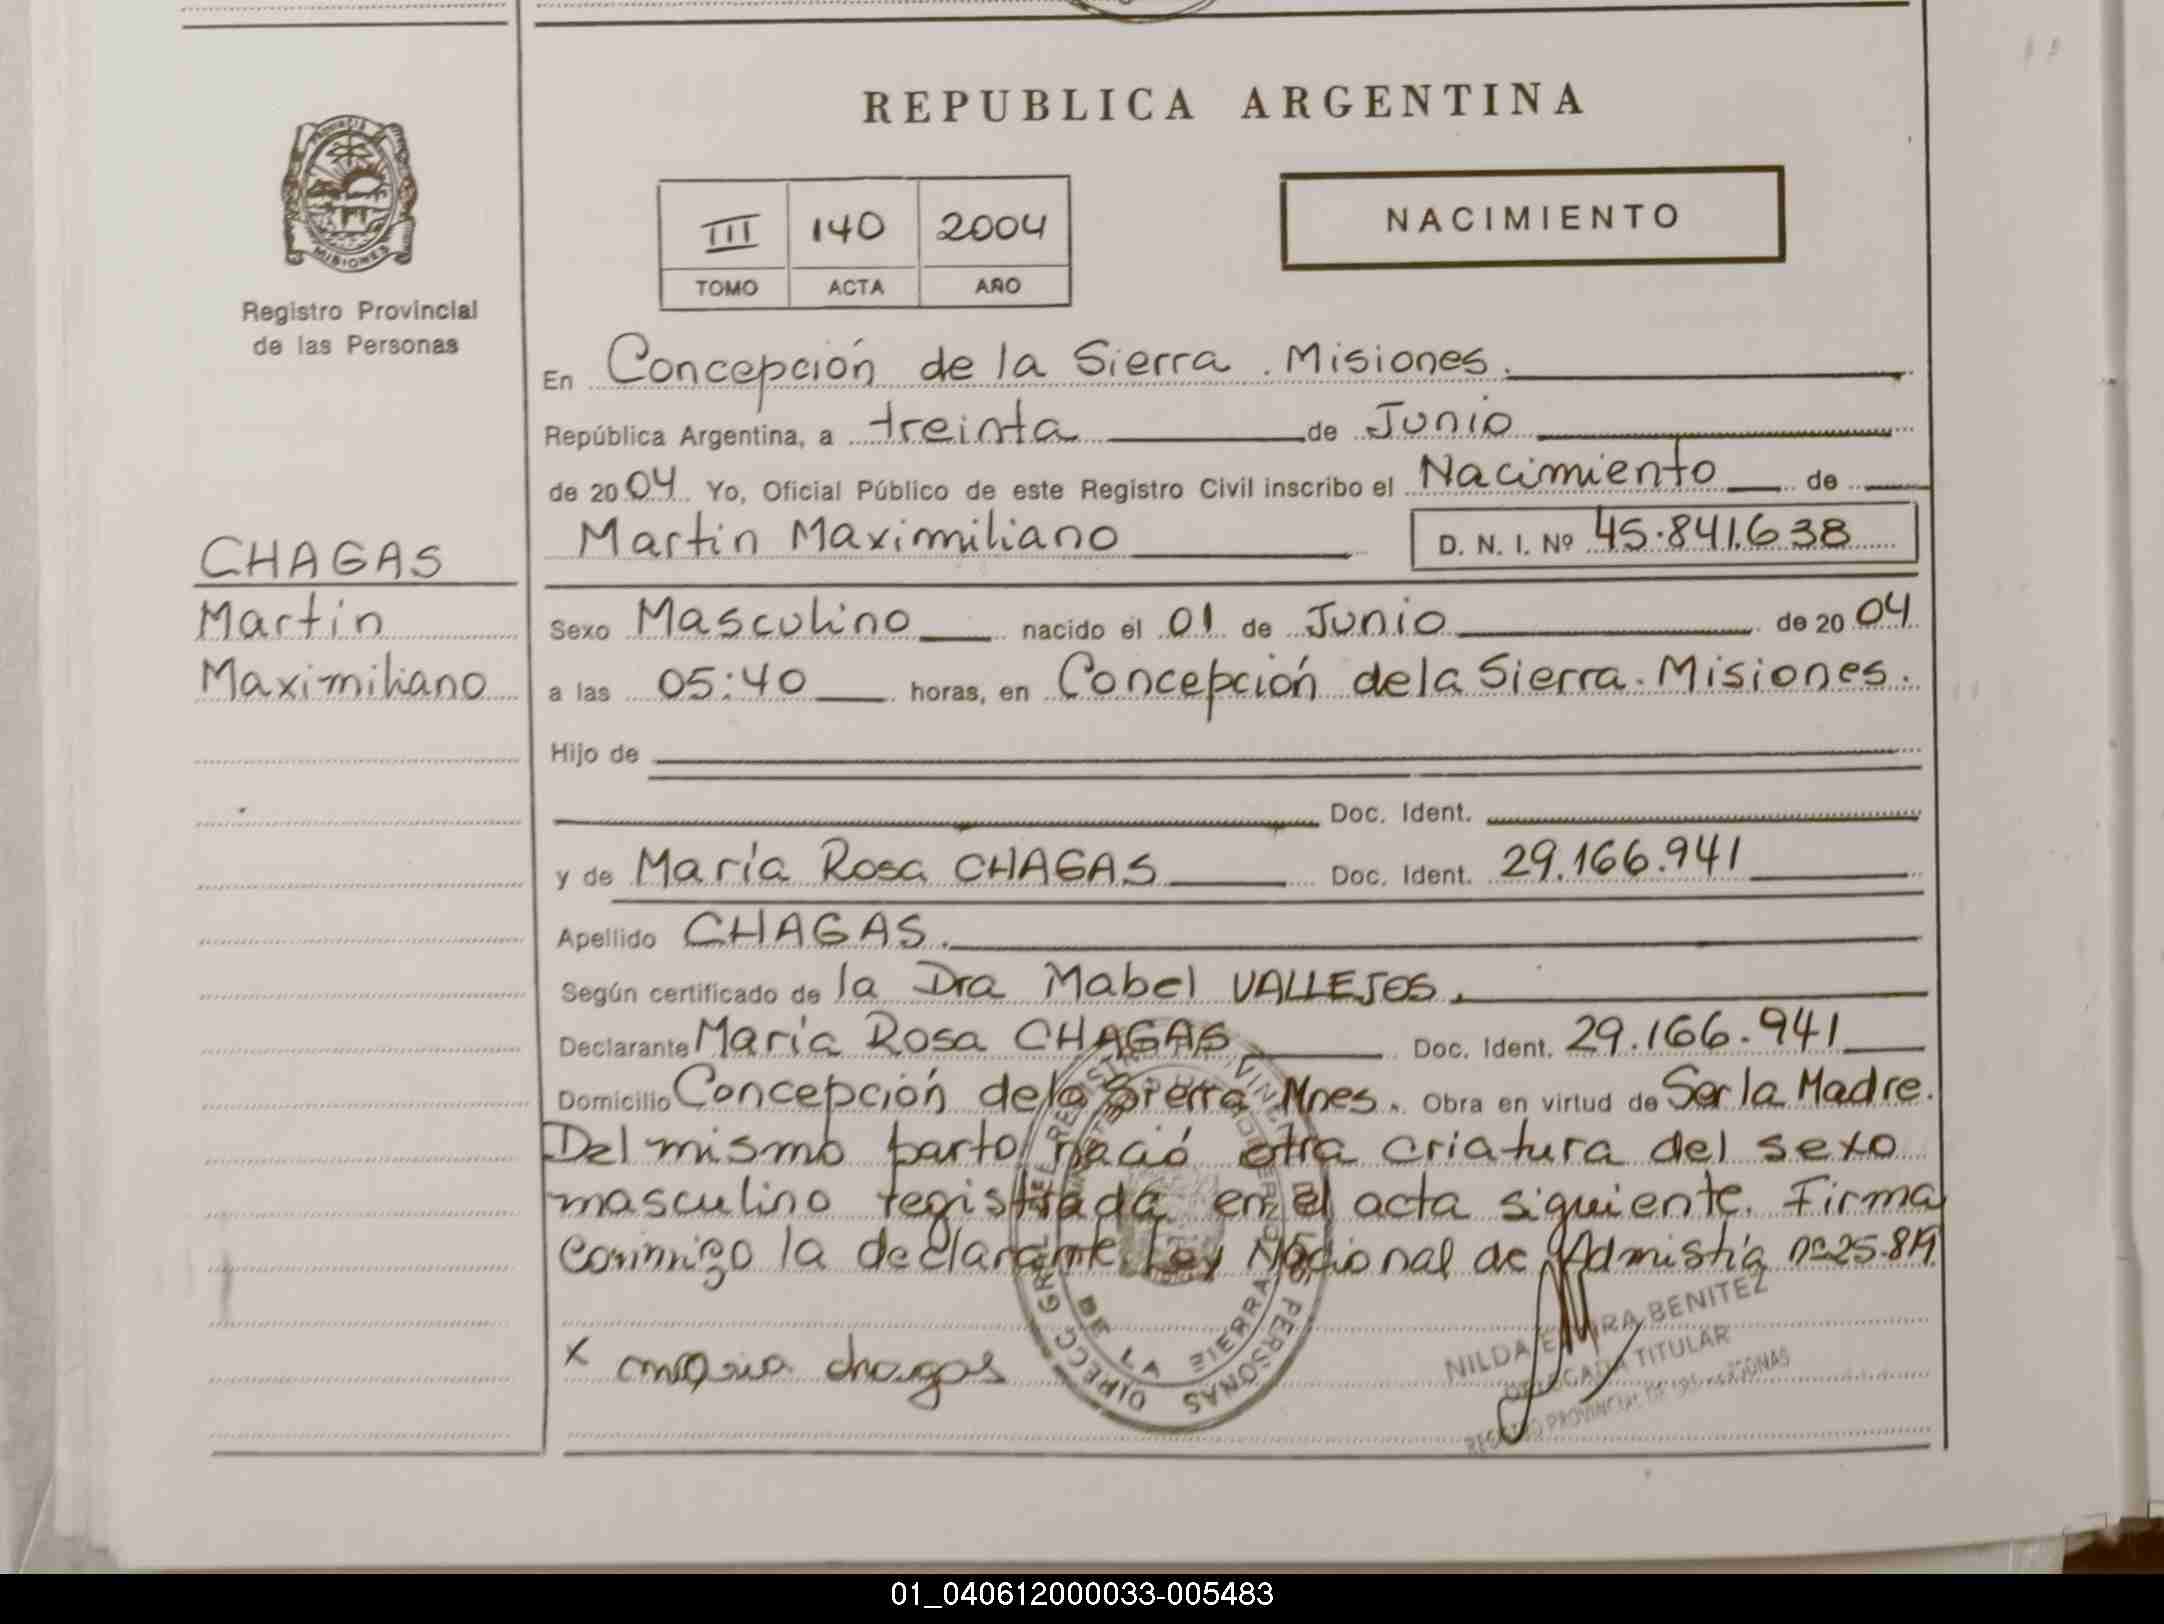 REPUBLICA ARGENTINA
PROVINCIA
MISIONES
Registro Provincial
de las Personas
III 140 2004
TOMO ACTA AÑO
NACIMIENTO
En Concepción de la Sierra . Misiones.
República Argentina, a treinta de Junio
de 2004 Yo, Oficial Público de este Registro Civil inscribo el Nacimiento de
Martin Maximiliano D. N. I. Nº 45.841.638
CHAGAS
Martin
Maximiliano
Sexo Masculino nacido el 01 de Junio de 2004
a las 05:40 horas, en Concepción de la Sierra. Misiones.
Hijo de
Doc. Ident.
y de María Rosa CHAGAS Doc. Ident. 29.166.941
Apellido CHAGAS.
Según certificado de la Dra Mabel VALLEJOS.
Declarante María Rosa CHAGAS Doc. Ident. 29.166.941
Domicilio Concepción de la Sierra Mnes. Obra en virtud de Ser la Madre.
Del mismo parto nació otra criatura del sexo
masculino registrada en el acta siguiente. Firma
conmigo la declarante. Ley Nacional de Admistía nº 25.819
x maria chagas
DIRECC GRAL DEL REGISTRO PROVINCIAL DE LAS PERSONAS
DE LA SIERRA
NILDA ELVIRA BENITEZ
DELEGADA TITULAR
REGISTRO PROVINCIAL DE LAS PERSONAS
01_040612000033-005483